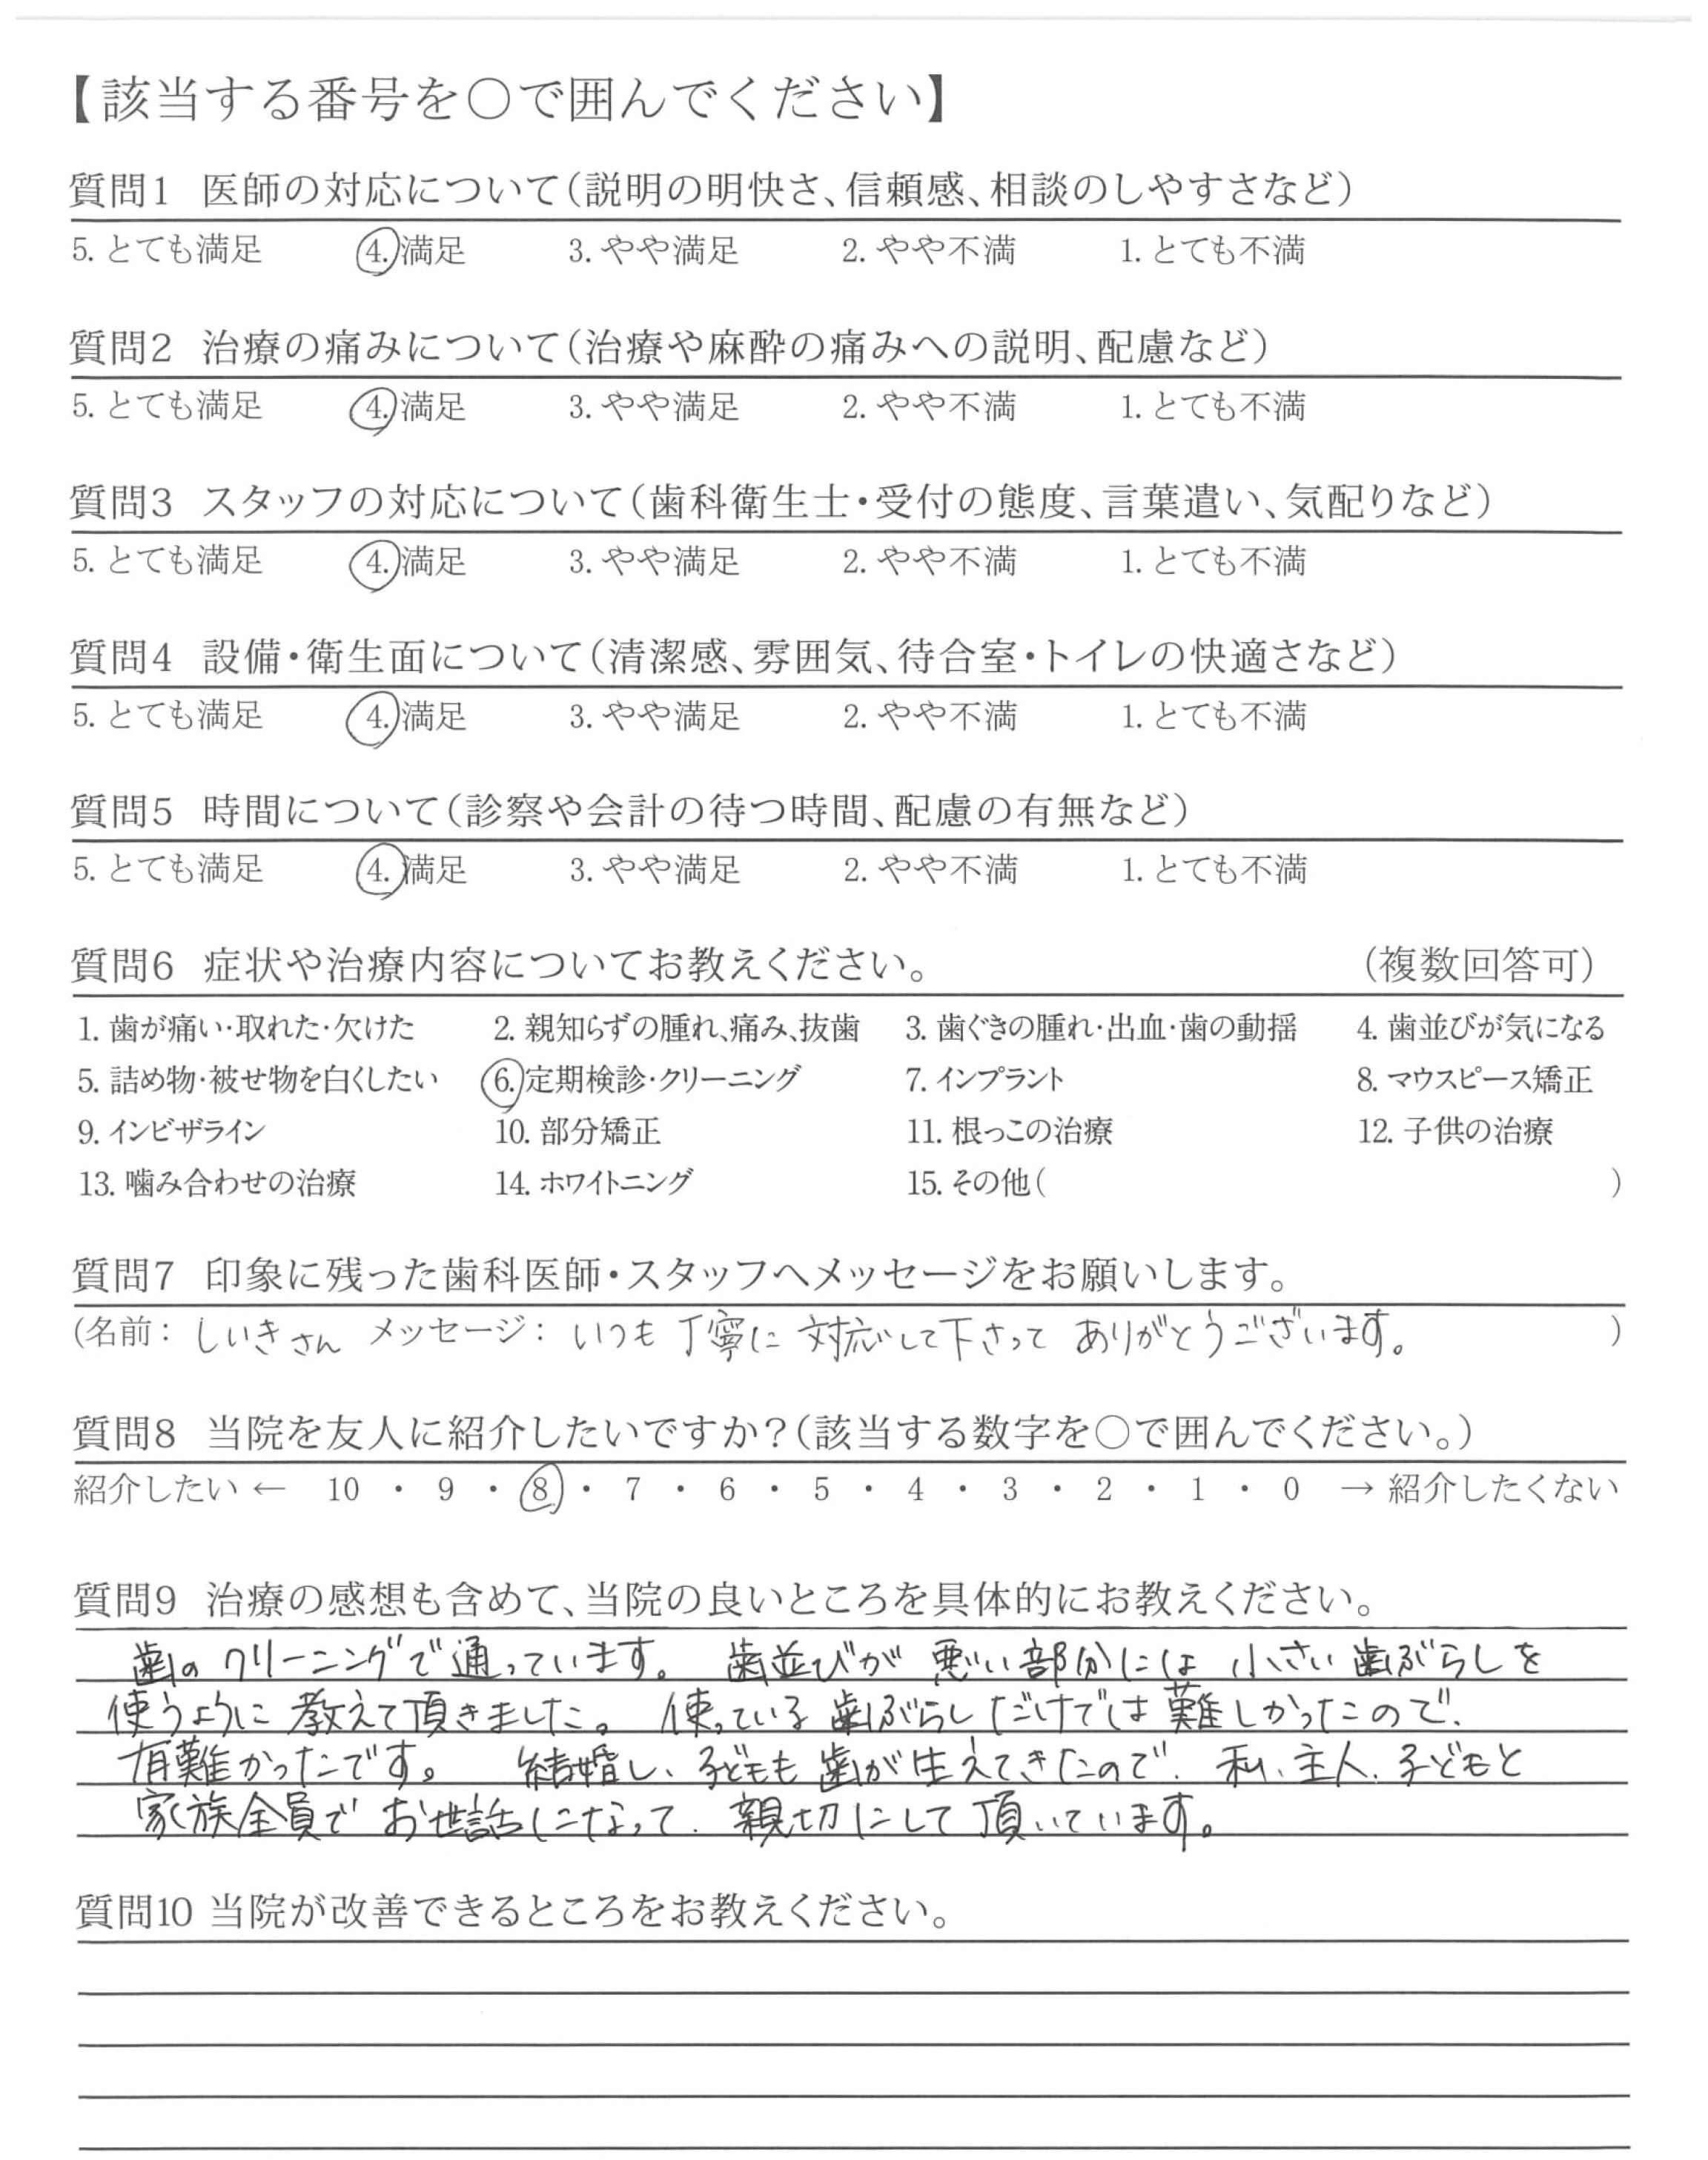 【該当する番号を○で囲んでください】
質問1 医師の対応について(説明の明快さ、信頼感、相談のしやすさなど)
5. とても満足 4. 満足 3. やや満足 2. やや不満 1. とても不満
質問2 治療の痛みについて(治療や麻酔の痛みへの説明、配慮など)
5. とても満足 4. 満足 3. やや満足 2. やや不満 1. とても不満
質問3 スタッフの対応について(歯科衛生士・受付の態度、言葉遣い、気配りなど)
5. とても満足 4. 満足 3. やや満足 2. やや不満 1. とても不満
質問4 設備・衛生面について(清潔感、雰囲気、待合室・トイレの快適さなど)
5. とても満足 4. 満足 3. やや満足 2. やや不満 1. とても不満
質問5 時間について(診察や会計の待つ時間、配慮の有無など)
5. とても満足 4. 満足 3. やや満足 2. やや不満 1. とても不満
質問6 症状や治療内容についてお教えください。 (複数回答可)
1. 歯が痛い・取れた・欠けた 2. 親知らずの腫れ、痛み、抜歯 3. 歯ぐきの腫れ・出血・歯の動揺 4. 歯並びが気になる
5. 詰め物・被せ物を白くしたい 6. 定期検診・クリーニング 7. インプラント 8. マウスピース矯正
9. インビザライン 10. 部分矯正 11. 根っこの治療 12. 子供の治療
13. 噛み合わせの治療 14. ホワイトニング 15. その他( )
質問7 印象に残った歯科医師・スタッフへメッセージをお願いします。
(名前: しいきさん メッセージ: いつも丁寧に対応して下さってありがとうございます。 )
質問8 当院を友人に紹介したいですか?(該当する数字を○で囲んでください。)
紹介したい ← 10 ・ 9 ・ 8 ・ 7 ・ 6 ・ 5 ・ 4 ・ 3 ・ 2 ・ 1 ・ 0 → 紹介したくない
質問9 治療の感想も含めて、当院の良いところを具体的にお教えください。
歯のクリーニングで通っています。 歯並びが悪い部分には小さい歯ぶらしを
使うように教えて頂きました。 使っている歯ぶらしだけでは難しかったので、
有難かったです。 結婚し、子どもも歯が生えてきたので、私、主人、子どもと
家族全員でお世話になって、親切にして頂いています。
質問10 当院が改善できるところをお教えください。